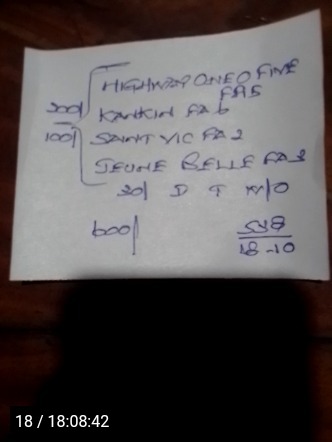 HIGHWAY ONE O FIVE
FAB
200/ KANKIN FA 6
100/ SAINT VIC FA 2
JEUNE BELLE FA 3
20/ D T W/O
600/
18-10
18 / 18:08:42